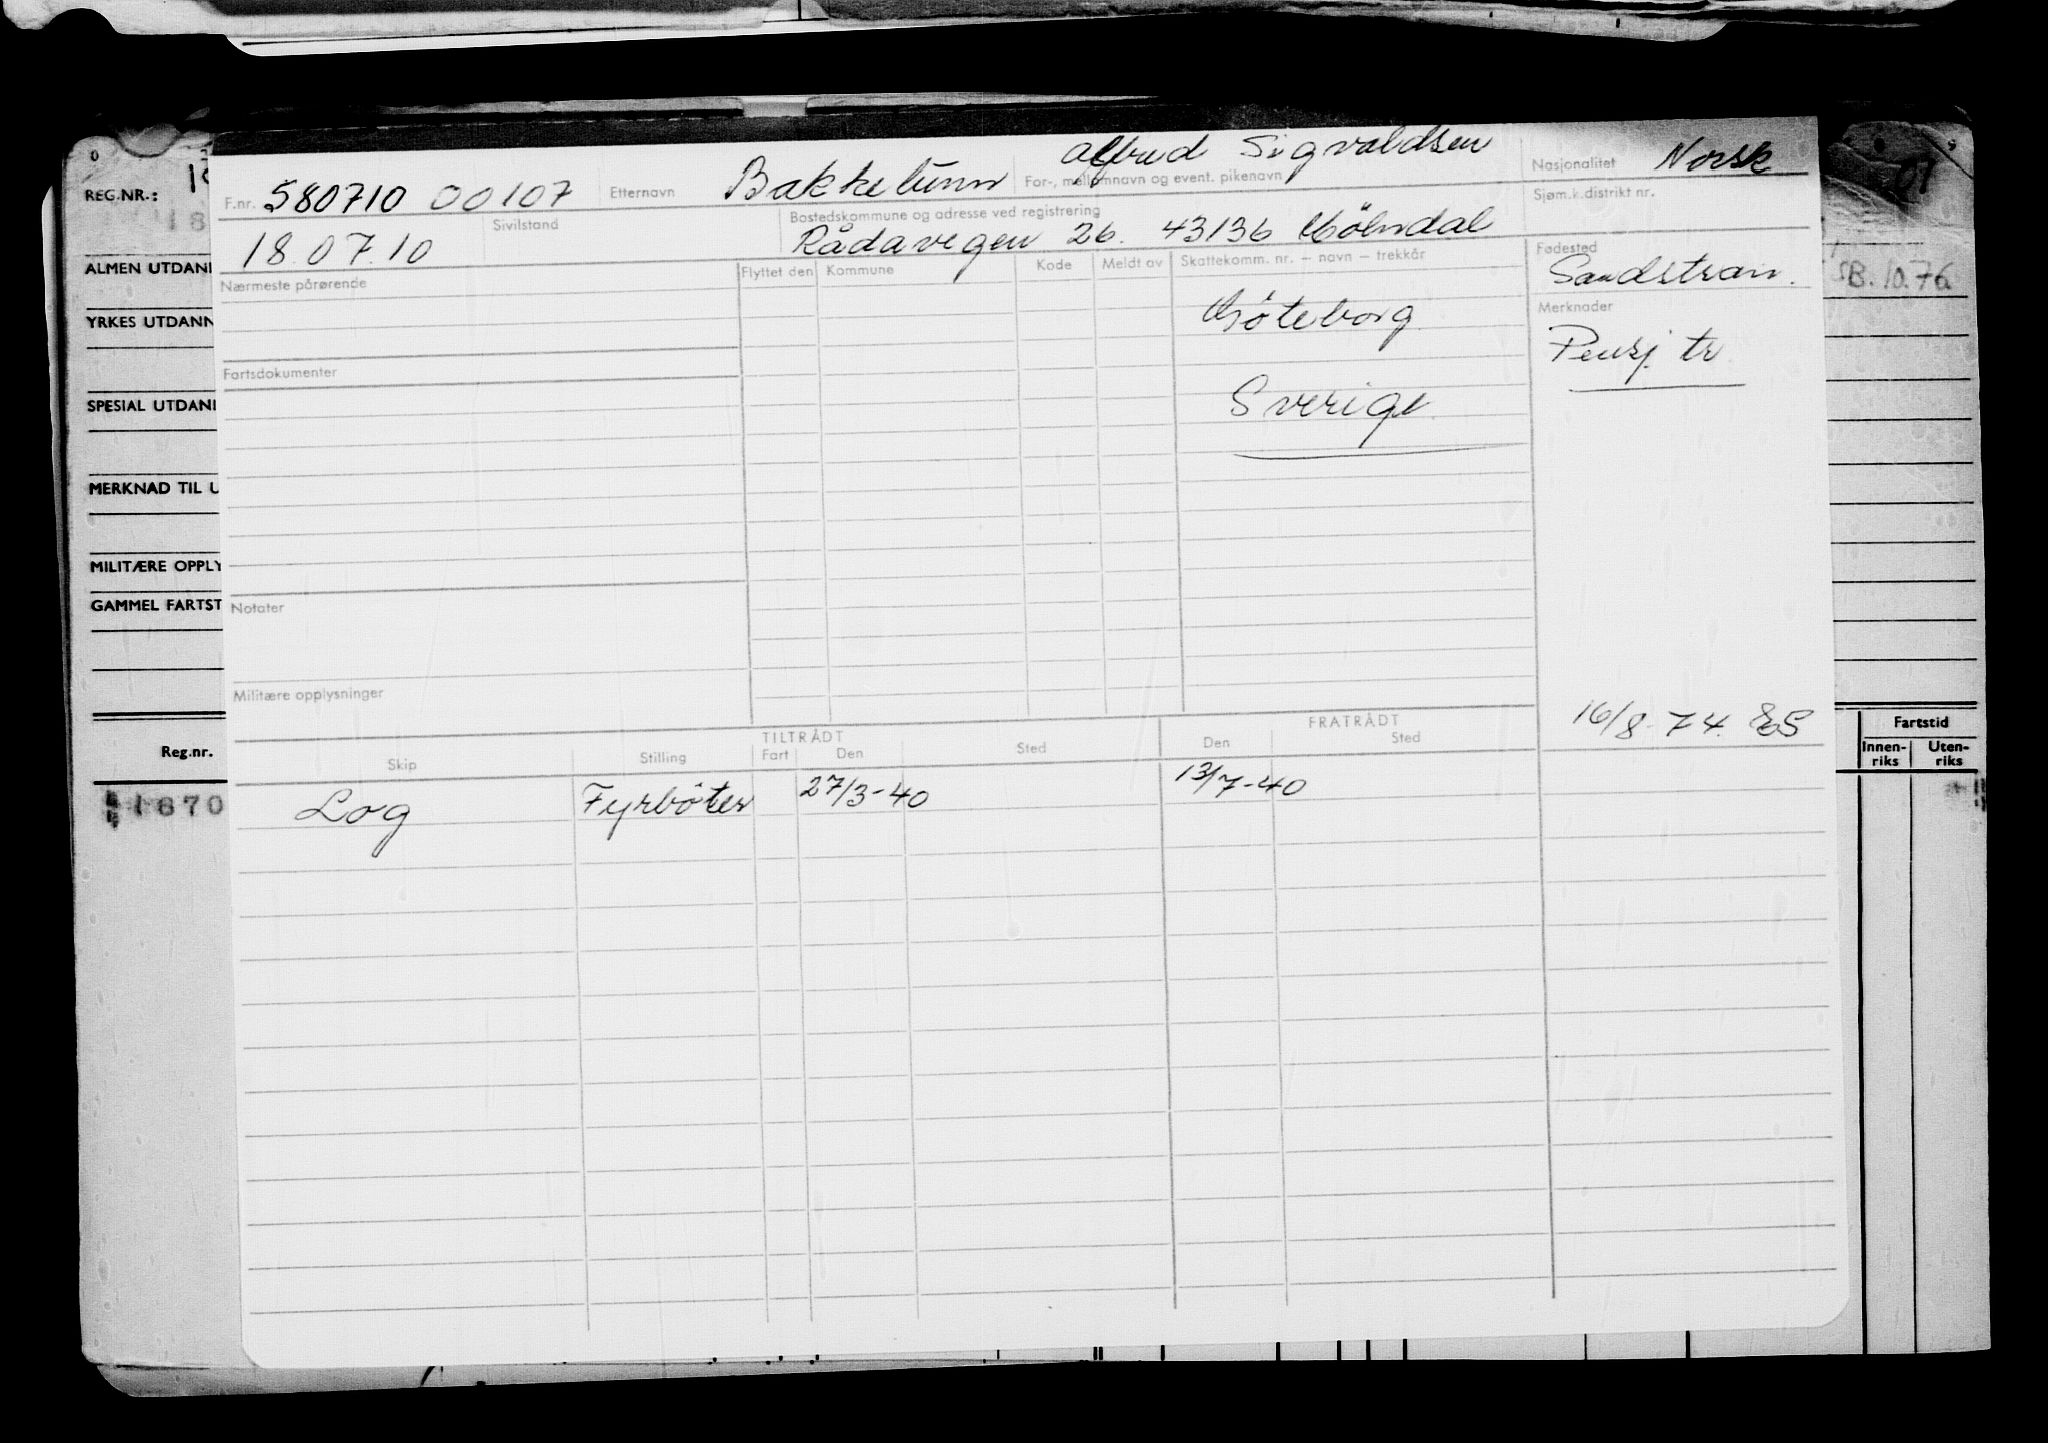 REG.NR.:
ALMEN UTDAN
YRKES UTDANN
SPESIAL UTDAN
MERKNAD TIL U
MILITÆRE OPPLY
GAMMEL FARTST
Reg.nr.
1670
F.nr. 580710 00107 Etternavn Bakketunn Alfred Sigvaldsen For-, mellomnavn og event. pikenavn Nasjonalitet Norsk
18.07.10 Sivilstand Bostedskommune og adresse ved registrering Sjøm.k.distrikt nr.
Rådavegen 26. 43136 Mölndal
Nærmeste pårørende Flyttet den Kommune Kode Meldt av Skattekomm. nr. – navn – trekkår Fødested
Sandstran.
SB.10.76
Göteborg Merknader
Pensj. tr
Fartsdokumenter
Sverige
Notater
Militære opplysninger
16/8-74
TILTRÅDT FRATRÅDT
Skip Stilling Fart Den Sted Den Sted
Log Fyrbøter 27/3-40 13/7-40
Fartstid
Innen-riks Uten-riks